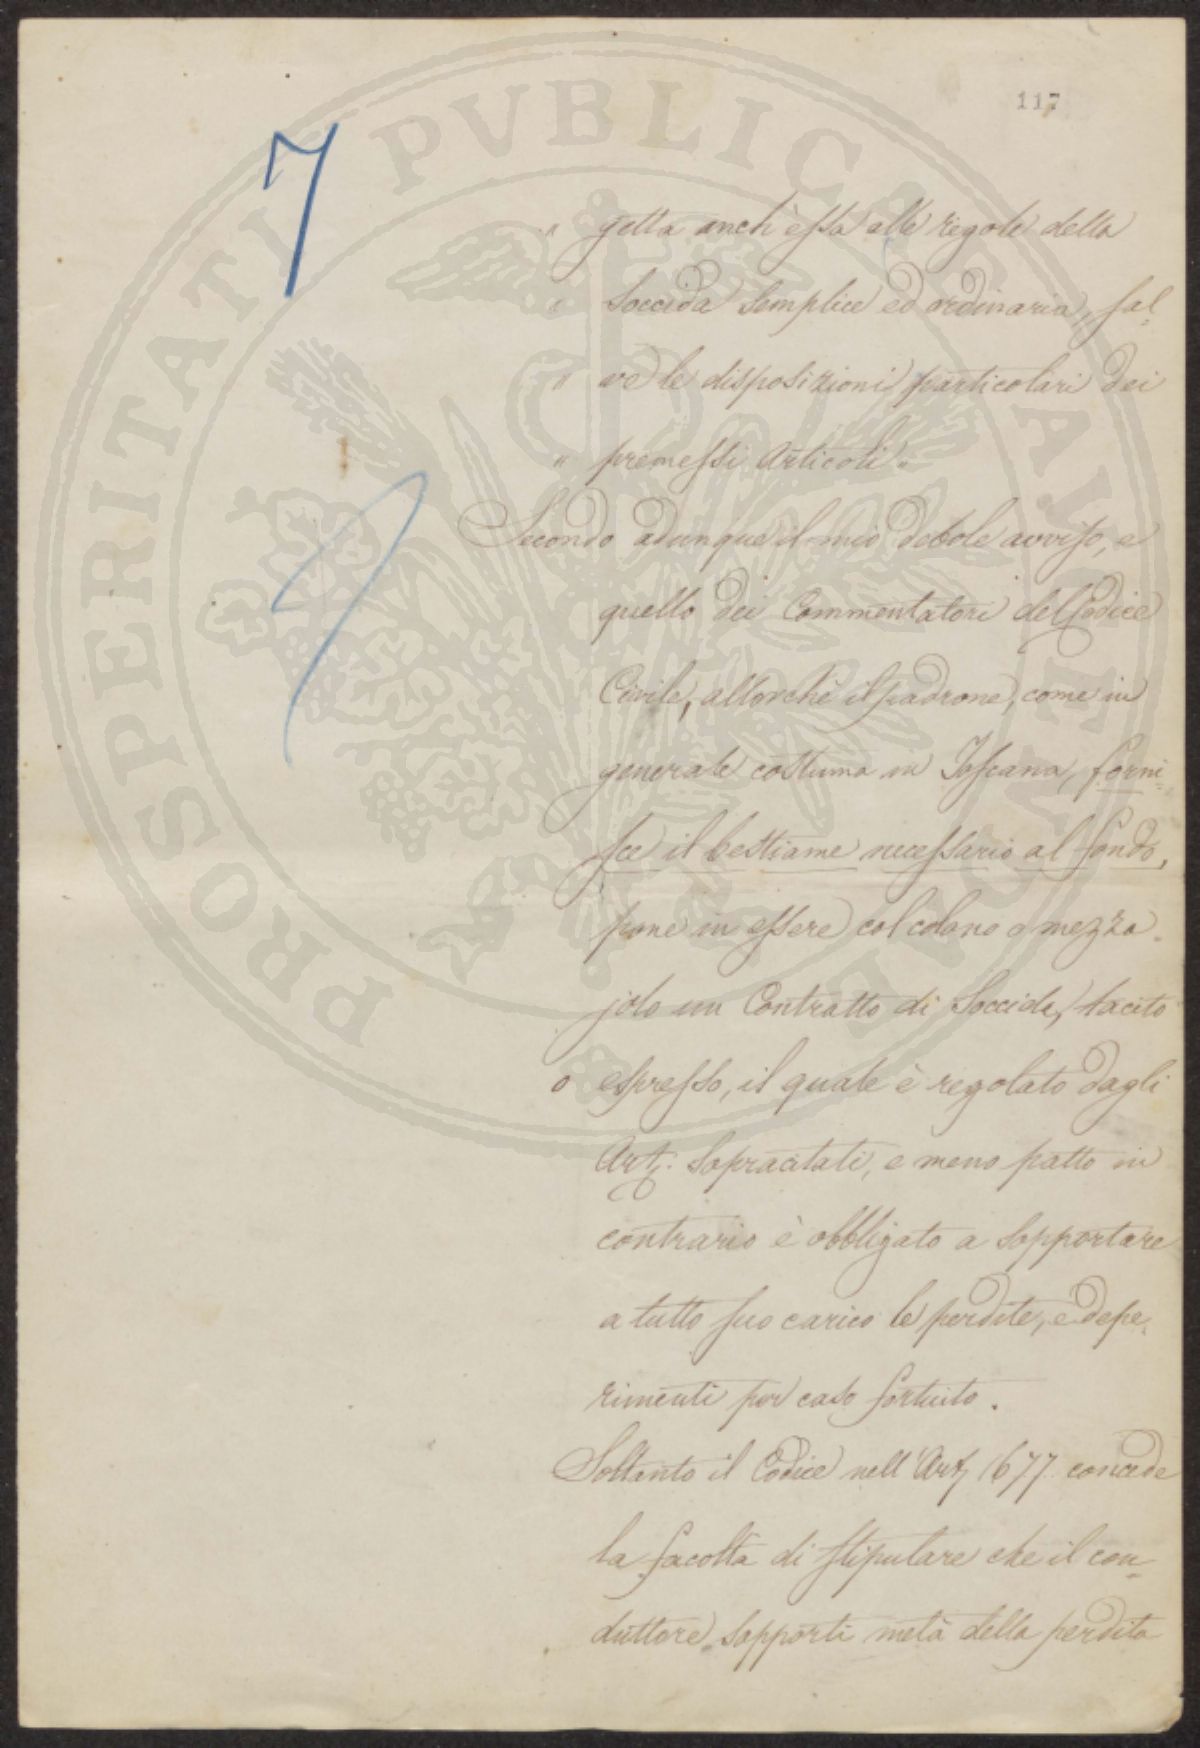 117
7
" getta anch'essa alle regole della
" Soccida Semplice ed ordinaria, sal-
" ve le disposizioni particolari dei
" premessi Articoli.
Secondo adunque il mio debole avviso, e
quello dei Commentatori del Codice
Civile, allorchè il padrone, come in
generale costuma in Toscana, forni-
sce il bestiame necessario al fondo,
pone in essere col colono o mezza-
jolo un Contratto di Soccida, tacito
o espresso, il quale è regolato dagli
Art: Sopracitati, e meno patto in
contrario è obbligato a sopportare
a tutto suo carico le perdite, e depe-
rimenti per caso fortuito.
Soltanto il Codice nell'Art 1677 concede
la facoltà di stipulare che il con-
duttore sopporti metà della perdita
PROSPERITATI PVBLICAE AVGENDAE